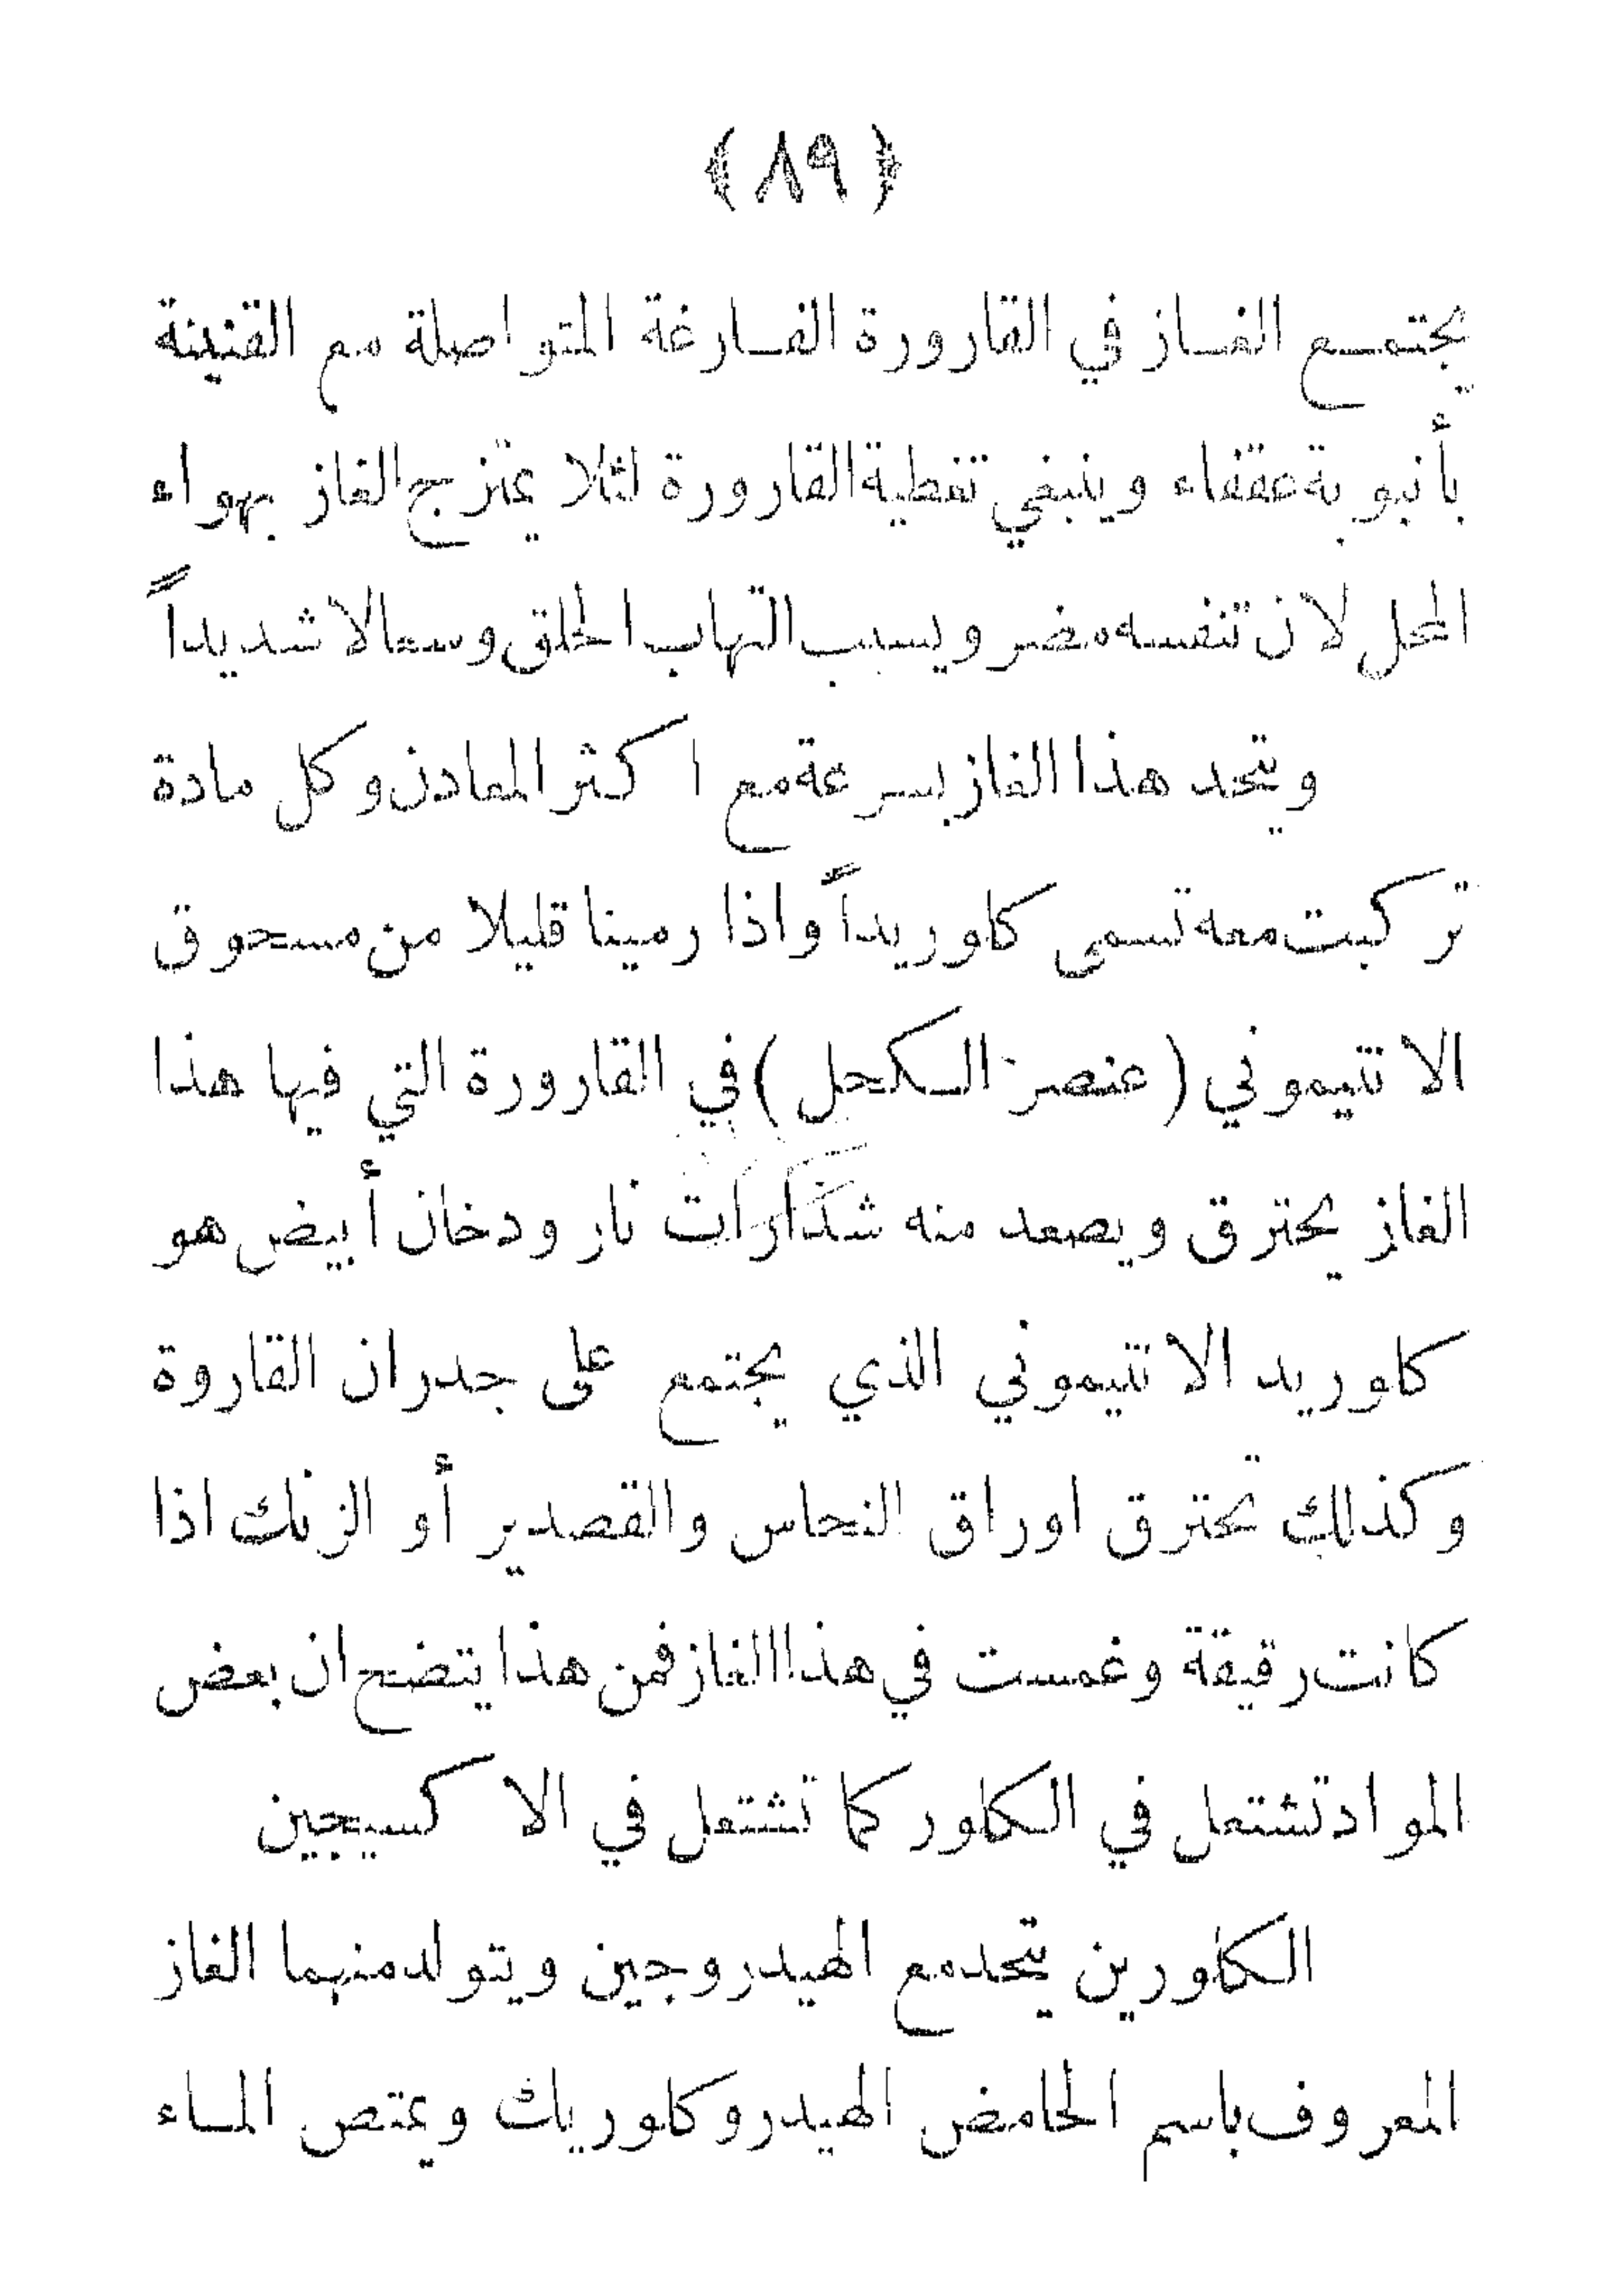 ﴿ ٨٩ ﴾
يجتمع الغاز في القارورة الفارغة المتواصلة مع القنينة
بأنبوبة عقفاء وينبغي تغطية القارورة لئلا يمتزج الغاز بهواء
المحل لان تنفسه مضر ويسبب التهاب الحلق وسعالا شديداً
ويتحد هذا الغاز بسرعة مع اكثر المعادن وكل مادة
تركبت معه تسمى كلوريداً واذا رمينا قليلا من مسحوق
الانتيموني (عنصر الكحل) في القارورة التي فيها هذا
الغاز يحترق ويصعد منه شذارات نار ودخان أبيض هو
كلوريد الانتيموني الذي يجتمع على جدران القاروة
وكذلك تحترق اوراق النحاس والقصدير أو الزنك اذا
كانت رقيقة وغمست في هذا الغاز فمن هذا يتضح ان بعض
المواد تشتعل في الكلور كما تشتعل في الاكسيجين
الكلورين يتحد مع الهيدروجين ويتولد منهما الغاز
المعروف باسم الحامض الهيدروكلوريك ويمتص الماء